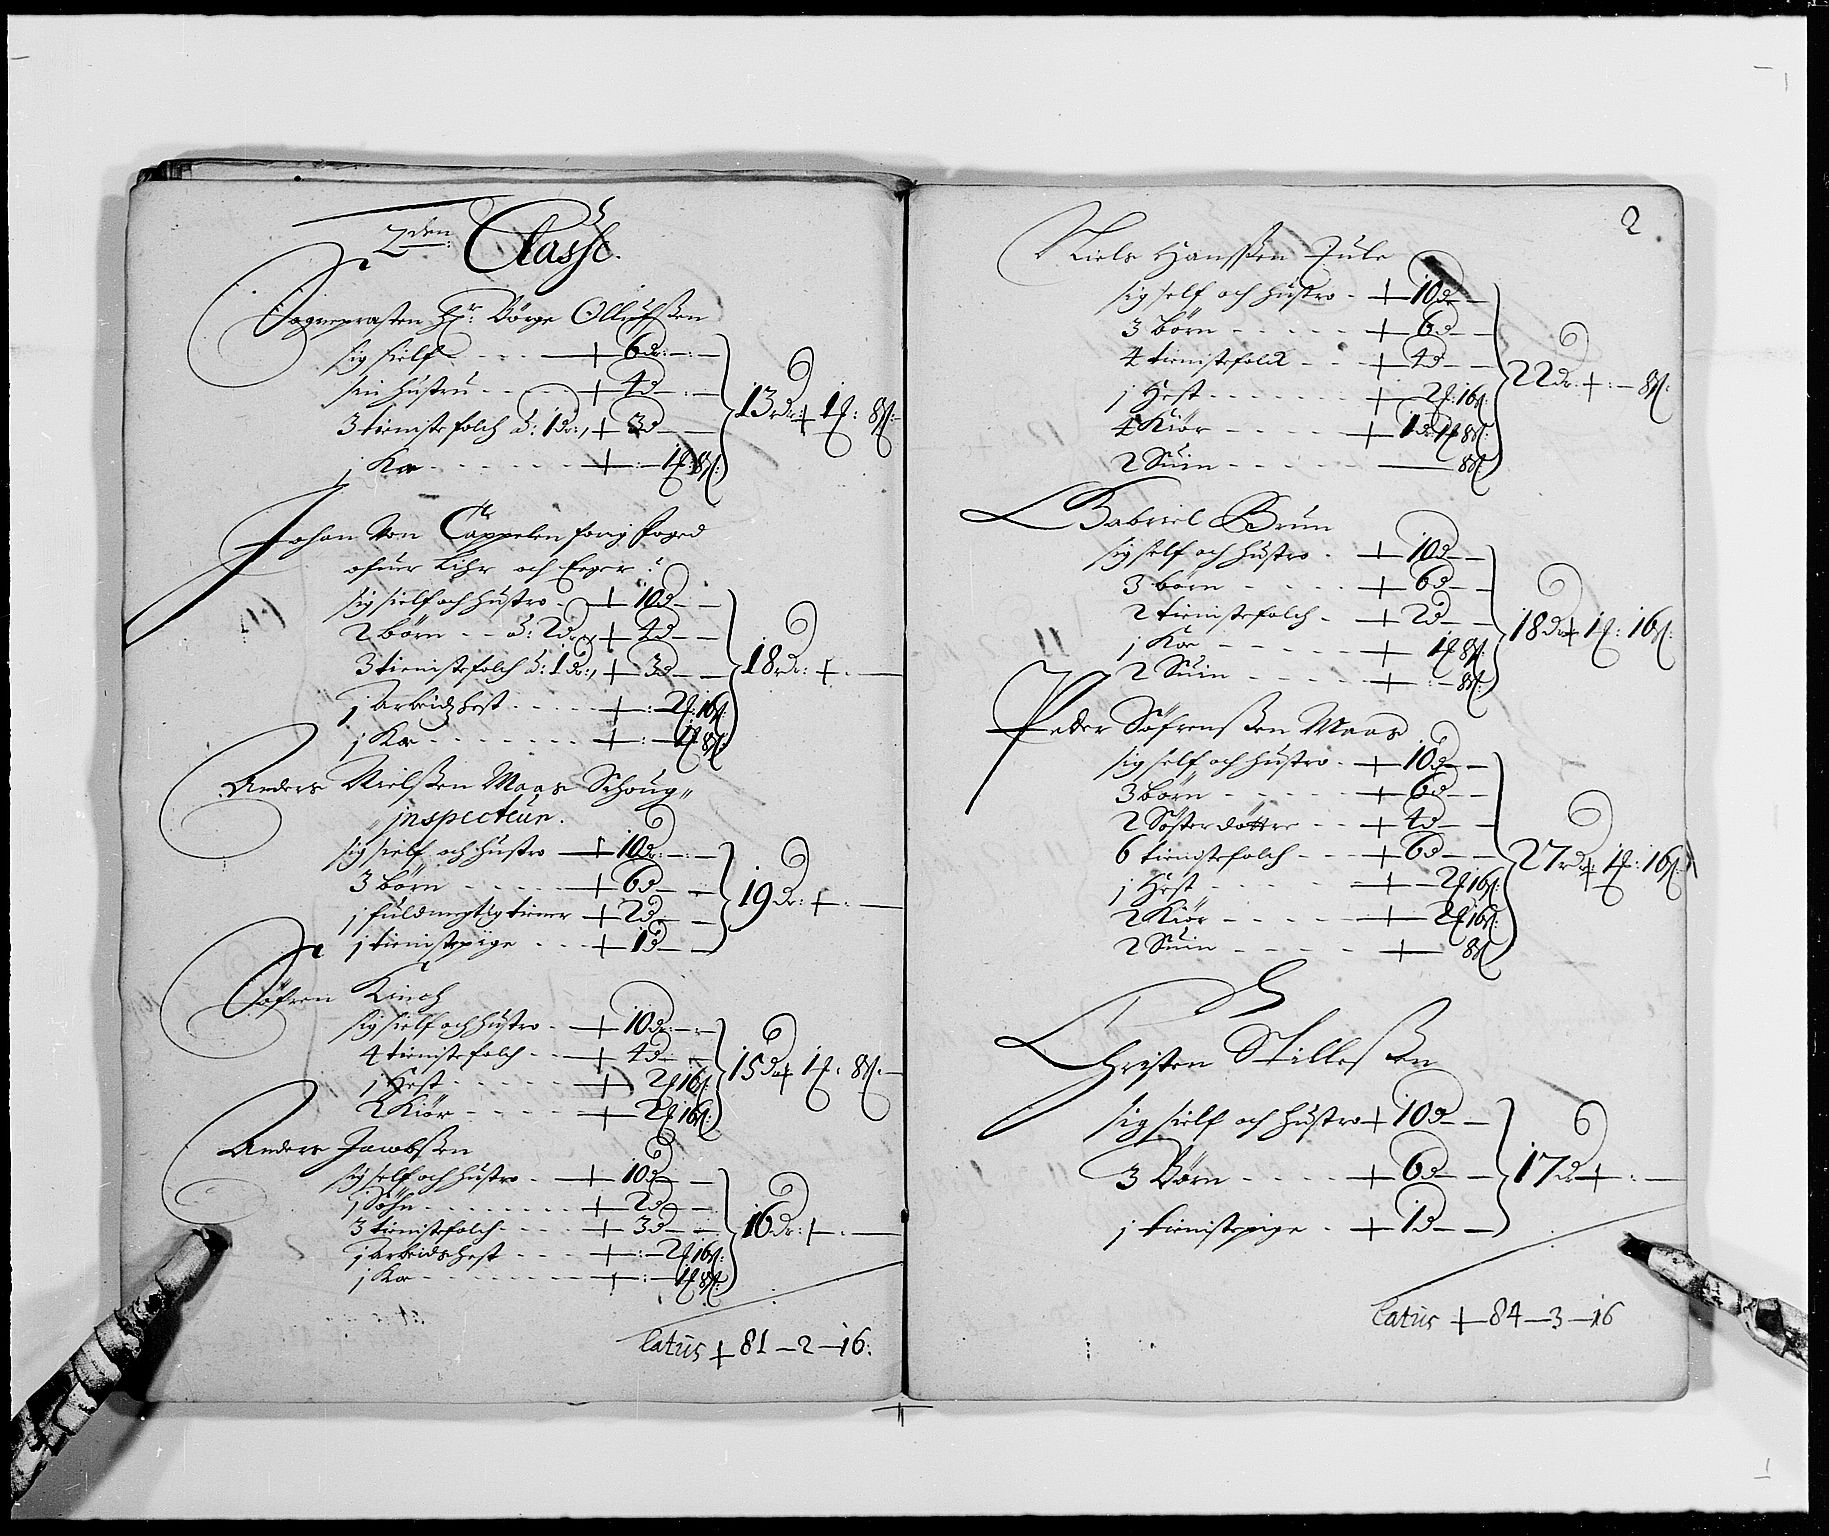 2den: Classe.
Sogneprasten Hr: Börge Ollufsßen
sig sielf - - - + 6 dr: - : -
sin hustru - - - + 4 d - : -
3 tienistefolch â: 1 dr:, + 3 d - -
j Koe - - - - + : - 1 f: 8 sl:
13 rdr: + 1 f: 8 sl: -
Johan Von Cappelen forig foged
ofuer Lihr och Eger:
sig sielf och hustro - + 10 d - -
2 börn - - â: 2 dr: + 4 d - -
3 tienistefolch â: 1 dr:, + 3 d - -
j Arbeidshest - - - - + : - 2 f: 16 sl:
j Koe - - - - - - + : - 1 f 8 sl:
18 rdr: + . -
Anders Nielsßen Maas Schoug„
„inspecteur.
sig sielf och hustro - + 10 dr: - : -
3 börn - - - - + 6 d - -
j fuldmegtig tiener + 2 d - -
j tienistepige - - - + 1 d - -
19 dr: + . -
Söfren Kinch
sig sielf och hustro - - + 10 dr: - : -
4 tienistefolch - - - + 4 d - -
j Hest - - - - - + 2 f 16 sl:
2 Kiör - - - - + - 2 f 16 sl:
15 dr + 1 f: 8 sl: -
Anders Jacobsßen
sig self och hustro - - + 10 d - -
j Söhn - - - - - - + 2 d - -
3 tienistefolch - - - - + 3 d - -
j Arbeidshest - - - + : - 2 f 16 sl:
j Koe - - - - - - + : - 1 f 8 sl:
16 dr: + . -
latus + 81 - 2 - 16:
2.
Niels Hansßen Jule
sig self och hustro - + 10 d -
3 börn - - - - - + 6 d -
4 tienistefolck - - + 4 d -
j Hest - - - - - - + - 2 f: 16 sl:
4 Kiör - - - - - + 1 dr 1 f 8 sl:
2 Suin - - - - - 8 sl:
22 dr: + : - 8 sl:
Gabriel Brun
sig self och hustro - + 10 d - -
3 börn - - - - + 6 d - -
2 tienistefolch - + 2 d - -
j Koe - - - - - - + 1 f 8 sl:
2 Suin - - - - - + : - 8 sl:
18 dr + 1 f: 16 sl:
Peder Söfrensßen Maas
sig self och hustro - + 10 d - -
3 börn - - - - - + 6 d - -
2 Söster döttre - - + 4 d - -
6 tienistefolch - - - + 6 d - -
j Hest - - - - - + - 2 f 16 sl:
2 Kiör - - - - - + - 2 f 16 sl:
2 Suin - - - - - + - 8 sl:
27 rdr + 1 f: 16 sl:
Christen Stillesßen
sig sielf och hustro + 10 d - -
3 Börn - - - - + 6 d - -
j tienistepige - + 1 d - -
17 dr + : -
latus + 84 - 3 - 16